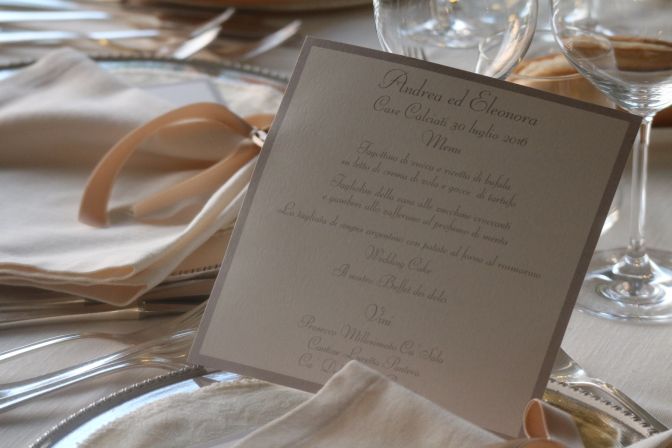 Andrea ed Eleonora
Case Calciati 30 luglio 2016
Menu
Fagottino di zucca e ricotta di bufala
su letto di crema di sola e gocce di tartufo
Tagliolini della casa alle zucchine croccanti
e gamberi allo zafferano al profumo di menta
La tagliata di angus argentino con patate al forno al rosmarino
Wedding Cake
Il nostro Buffet dei dolci
Vini
Prosecco Millesimato Ca' Salo
Cantine Loretta Pantera
Ca'